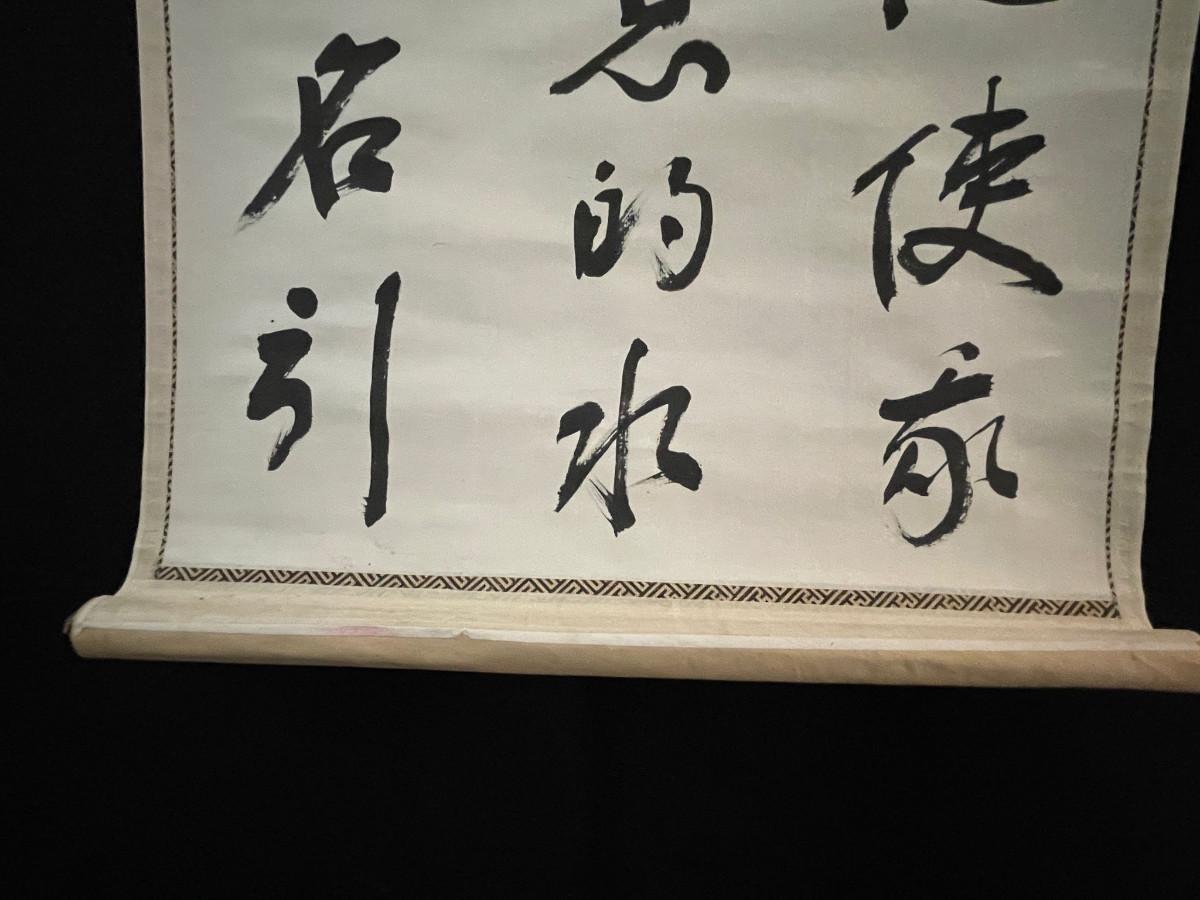 使我
的水
名引